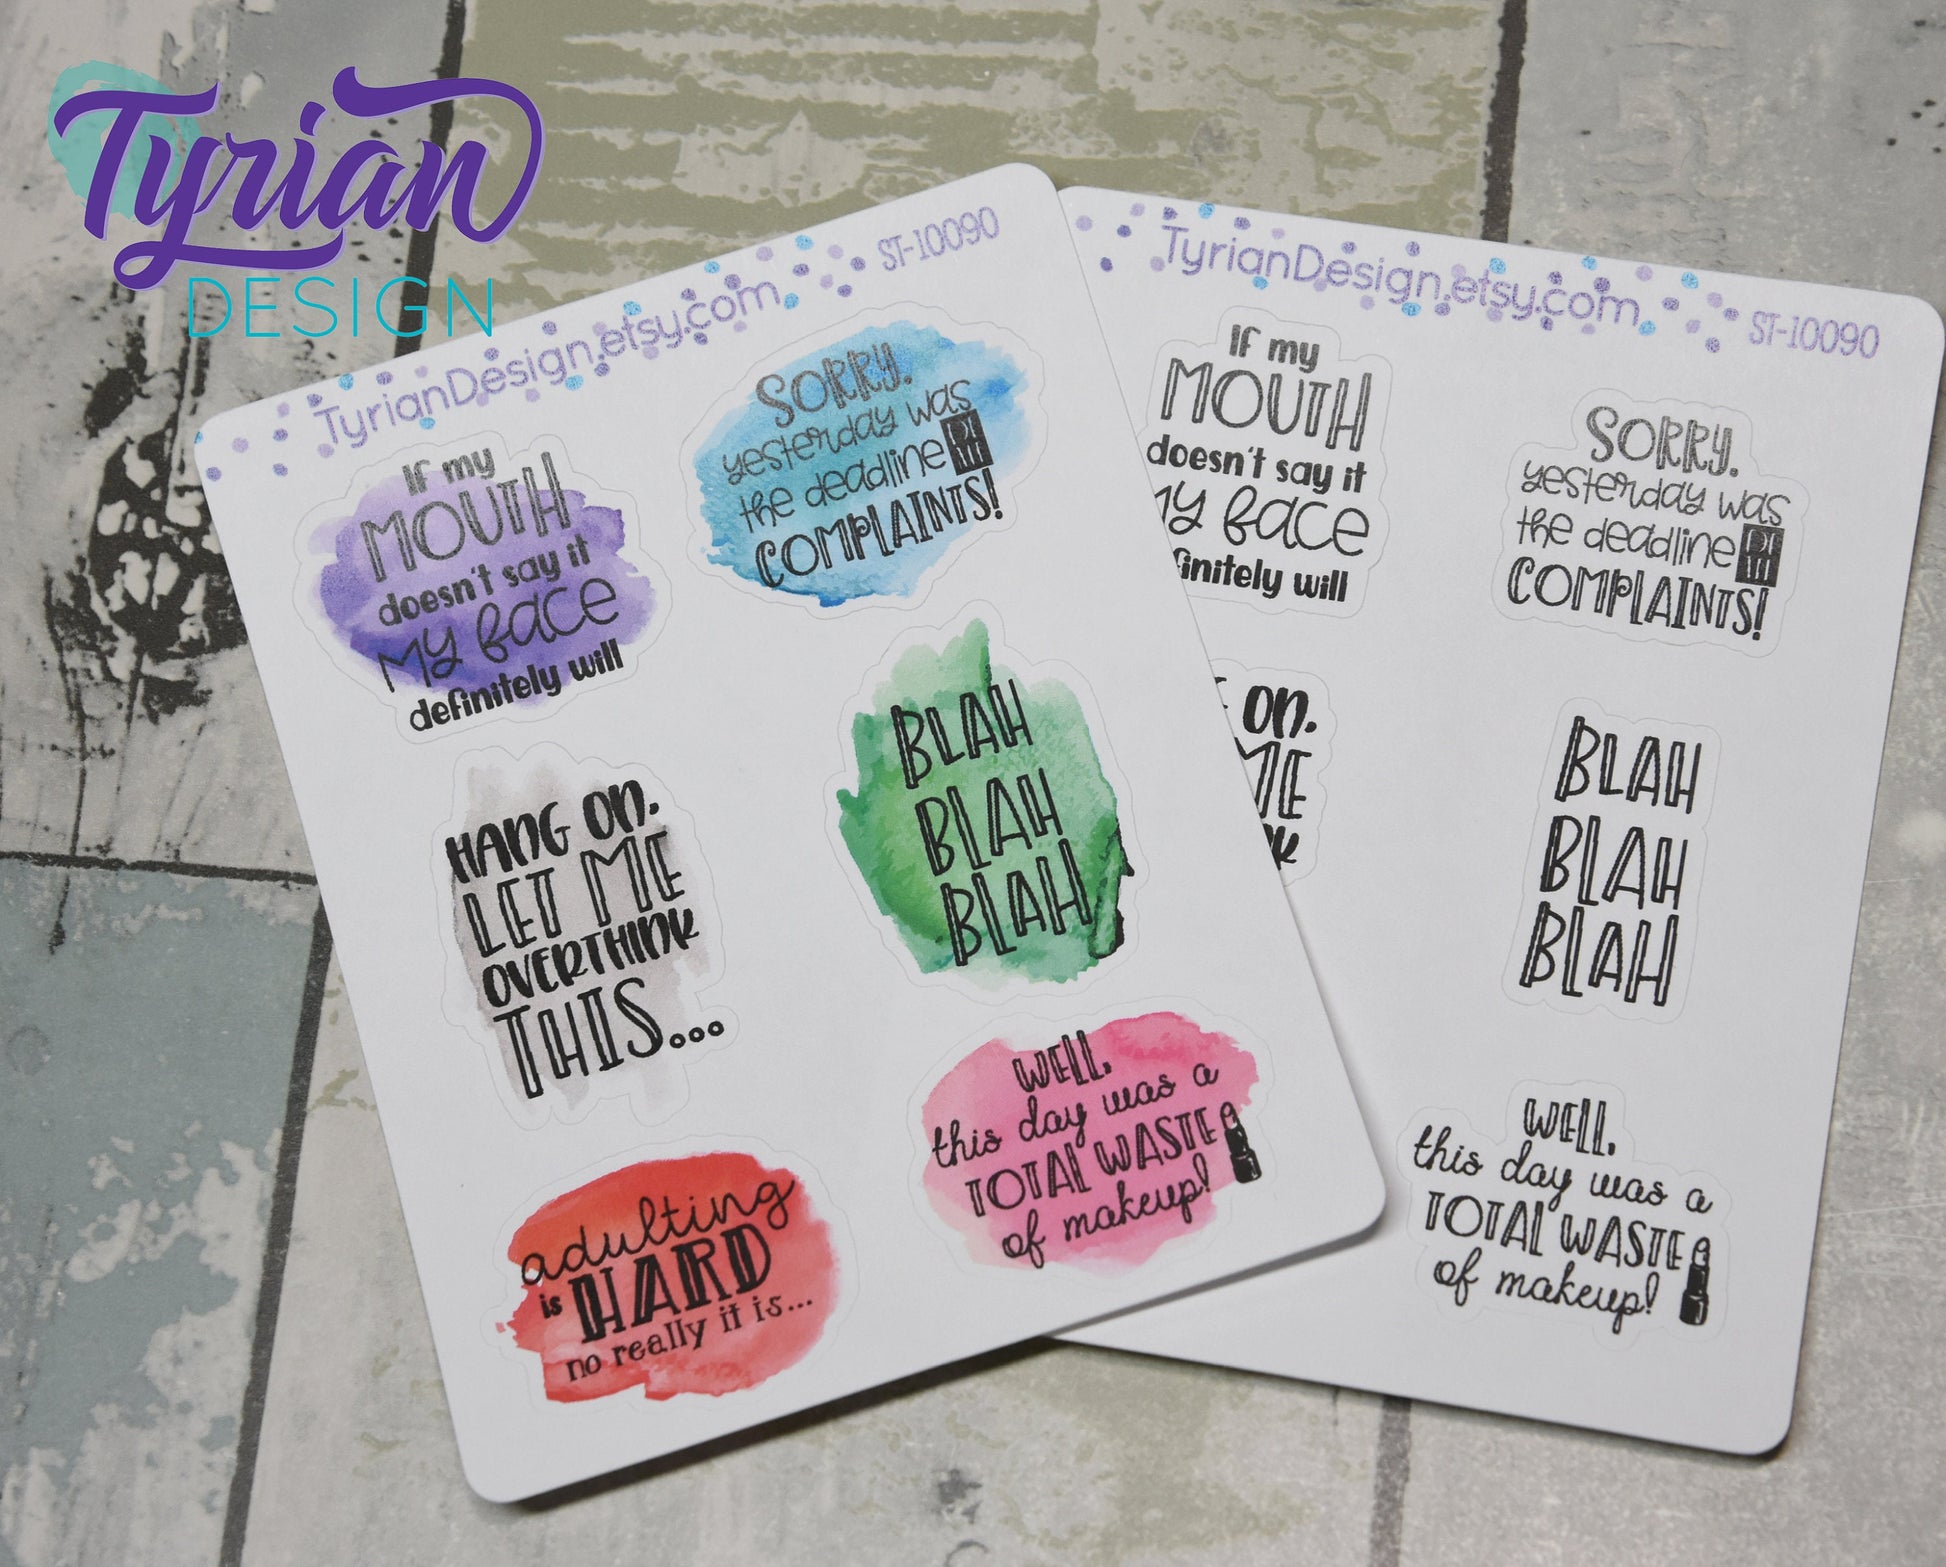 Tyrian
DESIGN
TyrianDesign.etsy.com
ST-10090
If my
MOUTH
doesn't say it
My face
definitely will
SORRY.
yesterday was
the deadline
COMPLAINTS!
HANG ON.
LET ME
OVERTHINK
THIS...
BLAH
BLAH
BLAH
adulting
is HARD
no really it is...
WELL,
this day was a
TOTAL WASTE
of makeup!
TyrianDesign.etsy.com
ST-10090
If my
MOUTH
doesn't say it
My face
finitely will
SORRY.
yesterday was
the deadline
COMPLAINTS!
ON.
ME
BLAH
BLAH
BLAH
WELL,
this day was a
TOTAL WASTE
of makeup!